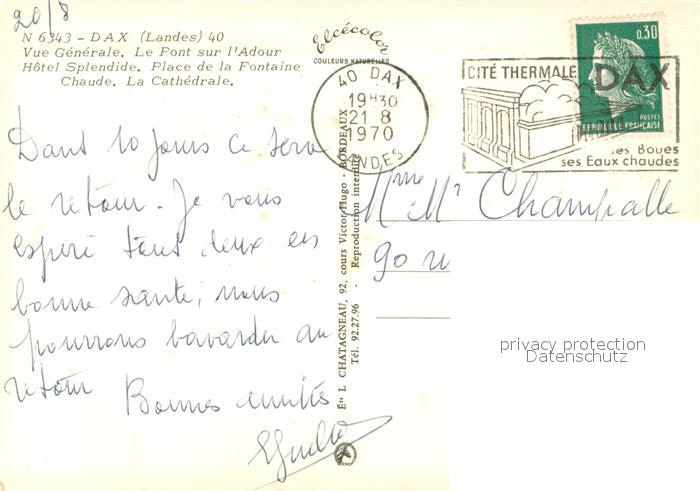 20/8
N 6343 - DAX (Landes) 40
Vue Générale. Le Pont sur l'Adour
Hôtel Splendide. Place de la Fontaine
Chaude. La Cathédrale.
Elcécolor
COULEURS NATURELLES
40 DAX
19H30
21 8
1970
LANDES
CITÉ THERMALE DAX
ses Boues
ses Eaux chaudes
0,30
POSTES
REPUBLIQUE FRANÇAISE
Dans 10 jours ce sera
le retour. Je vous
espère tous deux en
bonne santé, nous
pourrons bavarder au
retour Bonnes amitiés
Éts L. CHATAGNEAU, 92, cours Victor-Hugo - BORDEAUX
Tél. 92.27.96 - Reproduction interdite
Mme Mr Champalle
90
privacy protection
Datenschutz